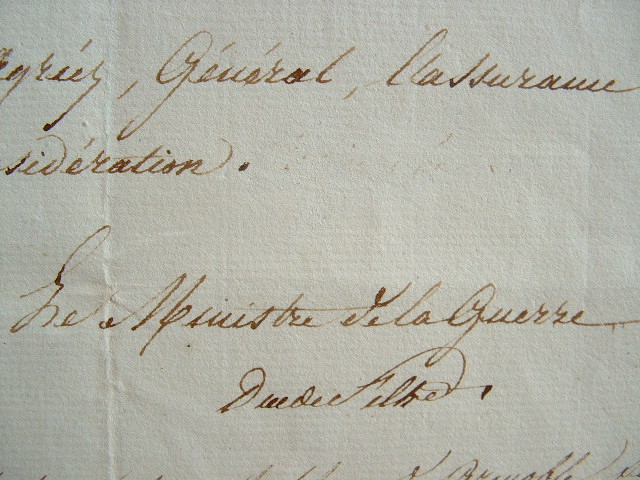 Agréez, Général, l'assurance
sidération.
Le Ministre de la Guerre
Duc de Feltre.